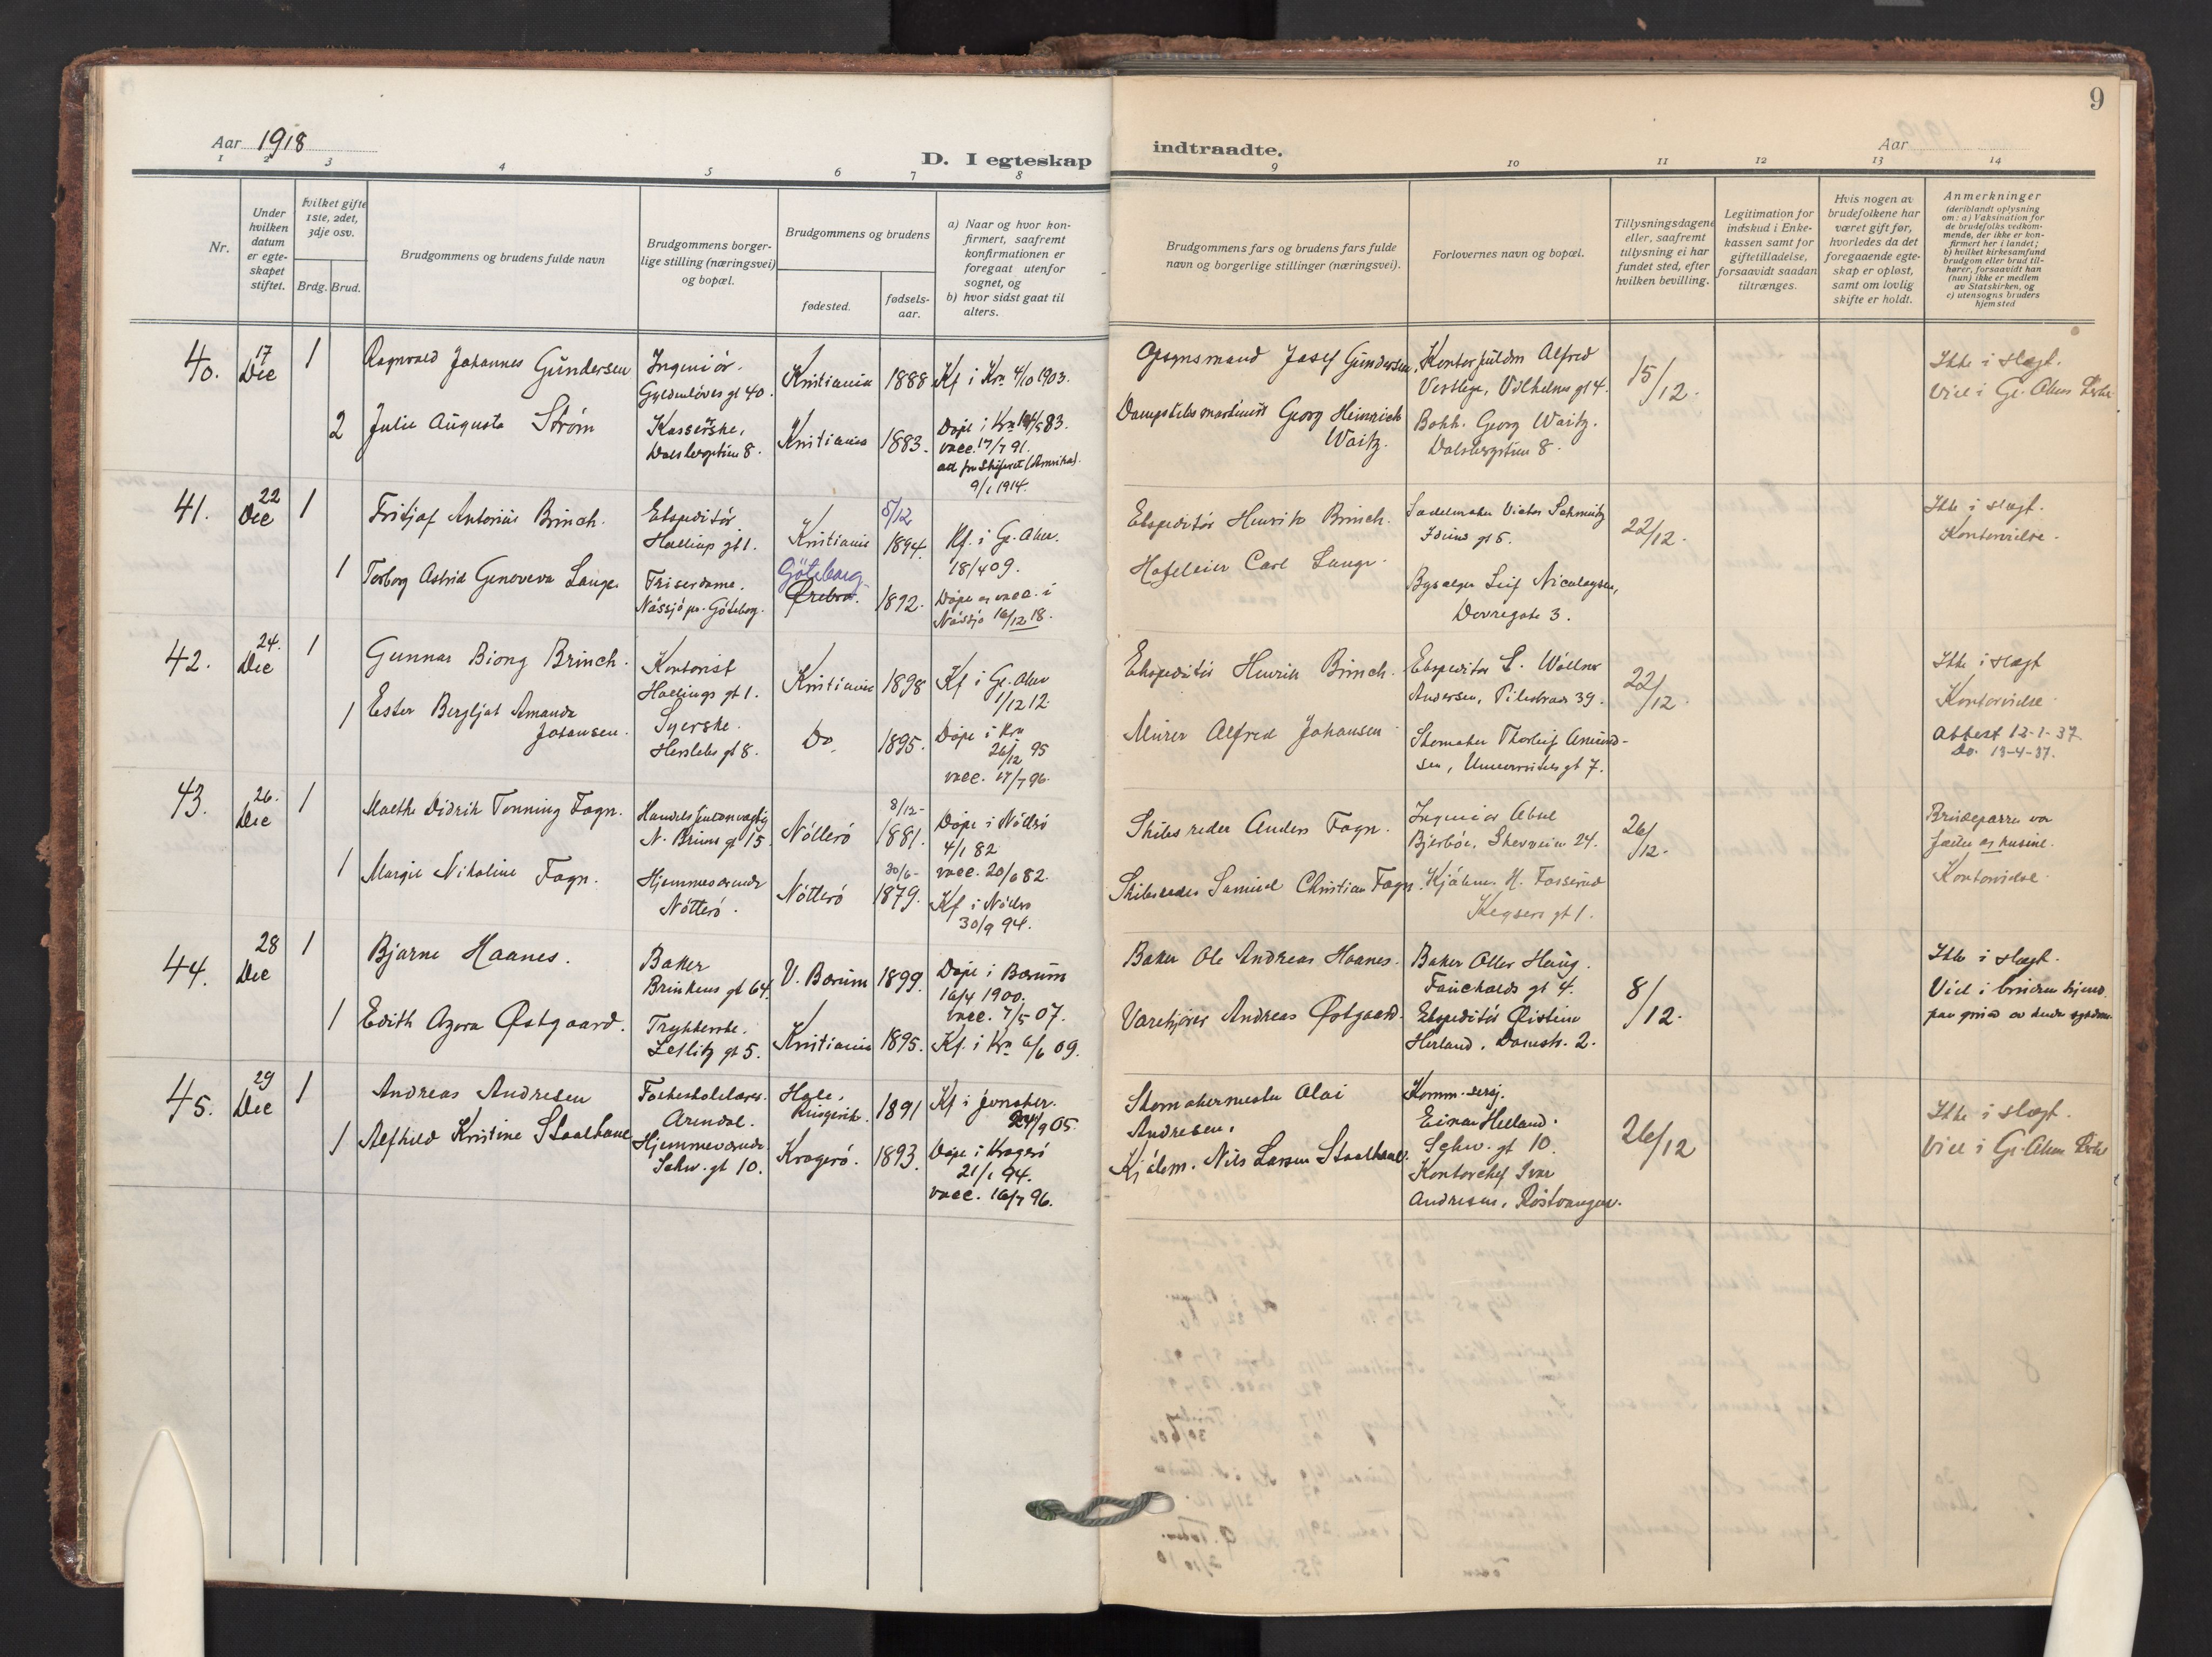 Aar 1918
D. I egteskap indtraadte.
Aar
9
1 2 3 4 5 6 7 8 9 10 11 12 13 14
Nr.
Under hvilken datum er egteskapet stiftet.
Hvilket gifte 1ste, 2det, 3dje osv.
Brdg. Brud.
Brudgommens og brudens fulde navn
Brudgommens borgerlige stilling (næringsvei) og bopæl.
Brudgommens og brudens
fødested.
fødselsaar.
a) Naar og hvor konfirmert, saafremt konfirmationen er foregaat utenfor sognet, og
b) hvor sidst gaat til alters.
Brudgommens fars og brudens fars fulde navn og borgerlige stillinger (næringsvei).
Forlovernes navn og bopæl.
Tillysningsdagene eller, saafremt tillysning ei har fundet sted, efter hvilken bevilling.
Legitimation for indskud i Enkekassen samt for giftetilladelse, forsaavidt saadan tiltrænges.
Hvis nogen av brudefolkene har været gift før, hvorledes da det foregaaende egteskap er opløst, samt om lovlig skifte er holdt.
Anmerkninger
(deriblandt oplysning om: a) Vaksination for de brudefolks vedkommende, der ikke er konfirmert her i landet; b) hvilket kirkesamfund brudgom eller brud tilhører, forsaavidt han (hun) ikke er medlem av Statskirken, og c) utensogns bruders hjemsted
40. 17 Dec 1
Ragnvald Johannes Gundersen
Ingeniør.
Gyldenløves gt 40.
Kristiania
1888
Kf i Kra 4/10 1903.
2
Julie Augusta Strøm
Kasserske.
Dalsbergstien 8.
Kristiania
1883.
Døpt i Kra
vacc. 17/7 91.
9/1 1914.
Josef Gundersen.
Georg Heinrich
Waitz.
Alfred
Vestlye, Vilhelms gt 4.
Bokh. Georg Waitz.
Dalsbergstien 8.
15/12.
Ikke i slegt.
Viet i Gl. Akers Kirke
41. 22 Dec 1
Fritjof Antonius Brinch.
Ekspeditør
Hallings gt 1.
Kristiania
5/12
1894.
Kf. i Gl. Aker.
18/4 09.
1
Torborg Astrid Genoveva Lange
Friserdame.
Nässjö pr. Göteborg.
Göteborg
Ørebro.
1892.
Døpt og vacc. i
Nässjö 16/12 18.
Ekspeditør Henrik Brinch.
Hofeleier Carl Lange.
Sadelmaker Victor Schmidtz
gt 5.
Leif Nicolaysen,
Dovregate 3.
22/12.
Ikke i slegt.
Kontorvielse.
42. 24. Dec 1
Gunnar Biong Brinch.
Kontorist
Hallings gt 1.
Kristiania
1898
Kf i Gl. Aker
1/12 12.
1
Ester Bergljot Amanda
Johansen.
Syerske.
Herslebs gt 8.
Do.
1895.
Døpt i Kra
26/12 95
vacc. 17/7 96.
Ekspeditør Henrik Brinch.
Murer Alfred Johansen
Ekspeditør S. Wöllner
Andersen, Pilestræde 39.
Skomaker Thorleif Amundsen, Universitets gt 7.
22/12.
Ikke i slegt
Kontorvielse.
Attest 12-1-37
Do. 13-4-37.
43. 26. Dec 1
Malthe Didrik Tonning Fagn.
Handelsfuldmægtig
N. Bruns gt 15
Nötterö
8/12-
1881.
Døpt i Nötterö
4/1 82
vacc. 20/6 82.
1
Margit Nikoline Fagn.
Hjemmeværende
Nötterö.
Nötterö
30/6-
1879.
Kf i Nötterö
30/9 94.
Skibsreder Anders Fagn.
Skibsreder Samuel Christian Fagn.
Ingeniør Aksel
Bjerböe, Skovveien 24.
Kjöbm. H. Fosserud
Keysers gt 1.
26/12.
Brudeparret var
fætter og kusine.
Kontorvielse.
44. 28 Dec 1
Bjarne Haanes.
Baker
Brinkens gt 64.
V. Bærum
1899.
Døpt i Bærum
16/4 1900.
vacc. 7/5 07.
1
Edith Agora Østgaard.
Trykkerske.
Zetlitz gt 5.
Kristiania
1895.
Kf. i Kra 6/6 09.
Baker Ole Andreas Haanes.
Varekjører Andreas Østgaard.
Baker Oller Haug.
Fauchalds gt 4.
Ekspeditør Øistein
Herland, Damstr. 2.
8/12.
Ikke i slegt.
Viet i brudens hjem
paa grund av hendes sygdom.
45. 29 Dec 1
Andreas Andresen
Folkeskolelærer.
Arendal.
Hole,
Ringerike.
1891
Kf i Jevnaker.
24/9 05.
1
Alfhild Kristine Staalhane
Hjemmeværende
Schw. gt 10.
Kragerö.
1893.
Døpt i Kragerö
21/1 94.
vacc. 16/7 96.
Skomakermester Olai
Andresen.
Kjöbm. Nils Larsen Staalhane.
Komm. serg.
Einar Helland.
Schw. gt 10.
Kontorchef Ivar
Andresen, Röstvangen.
26/12
Ikke i slegt.
Viet i Gl. Akers Kirke